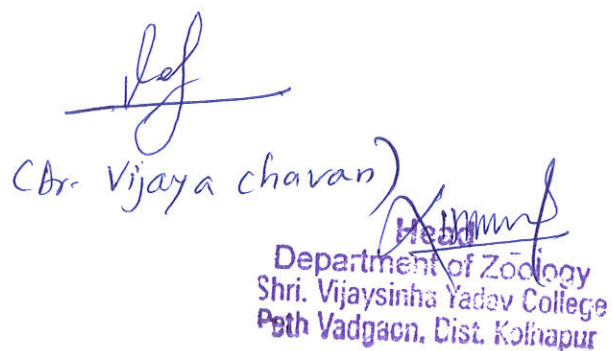 (Dr. Vijaya chavan)
Head
Department of Zoology
Shri. Vijaysinha Yadav College
Peth Vadgaon, Dist. Kolhapur